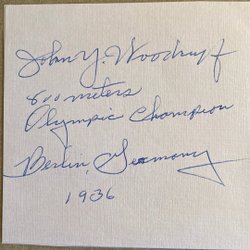 John Y. Woodruff
800 meters
Olympic Champion
Berlin, Germany
1936